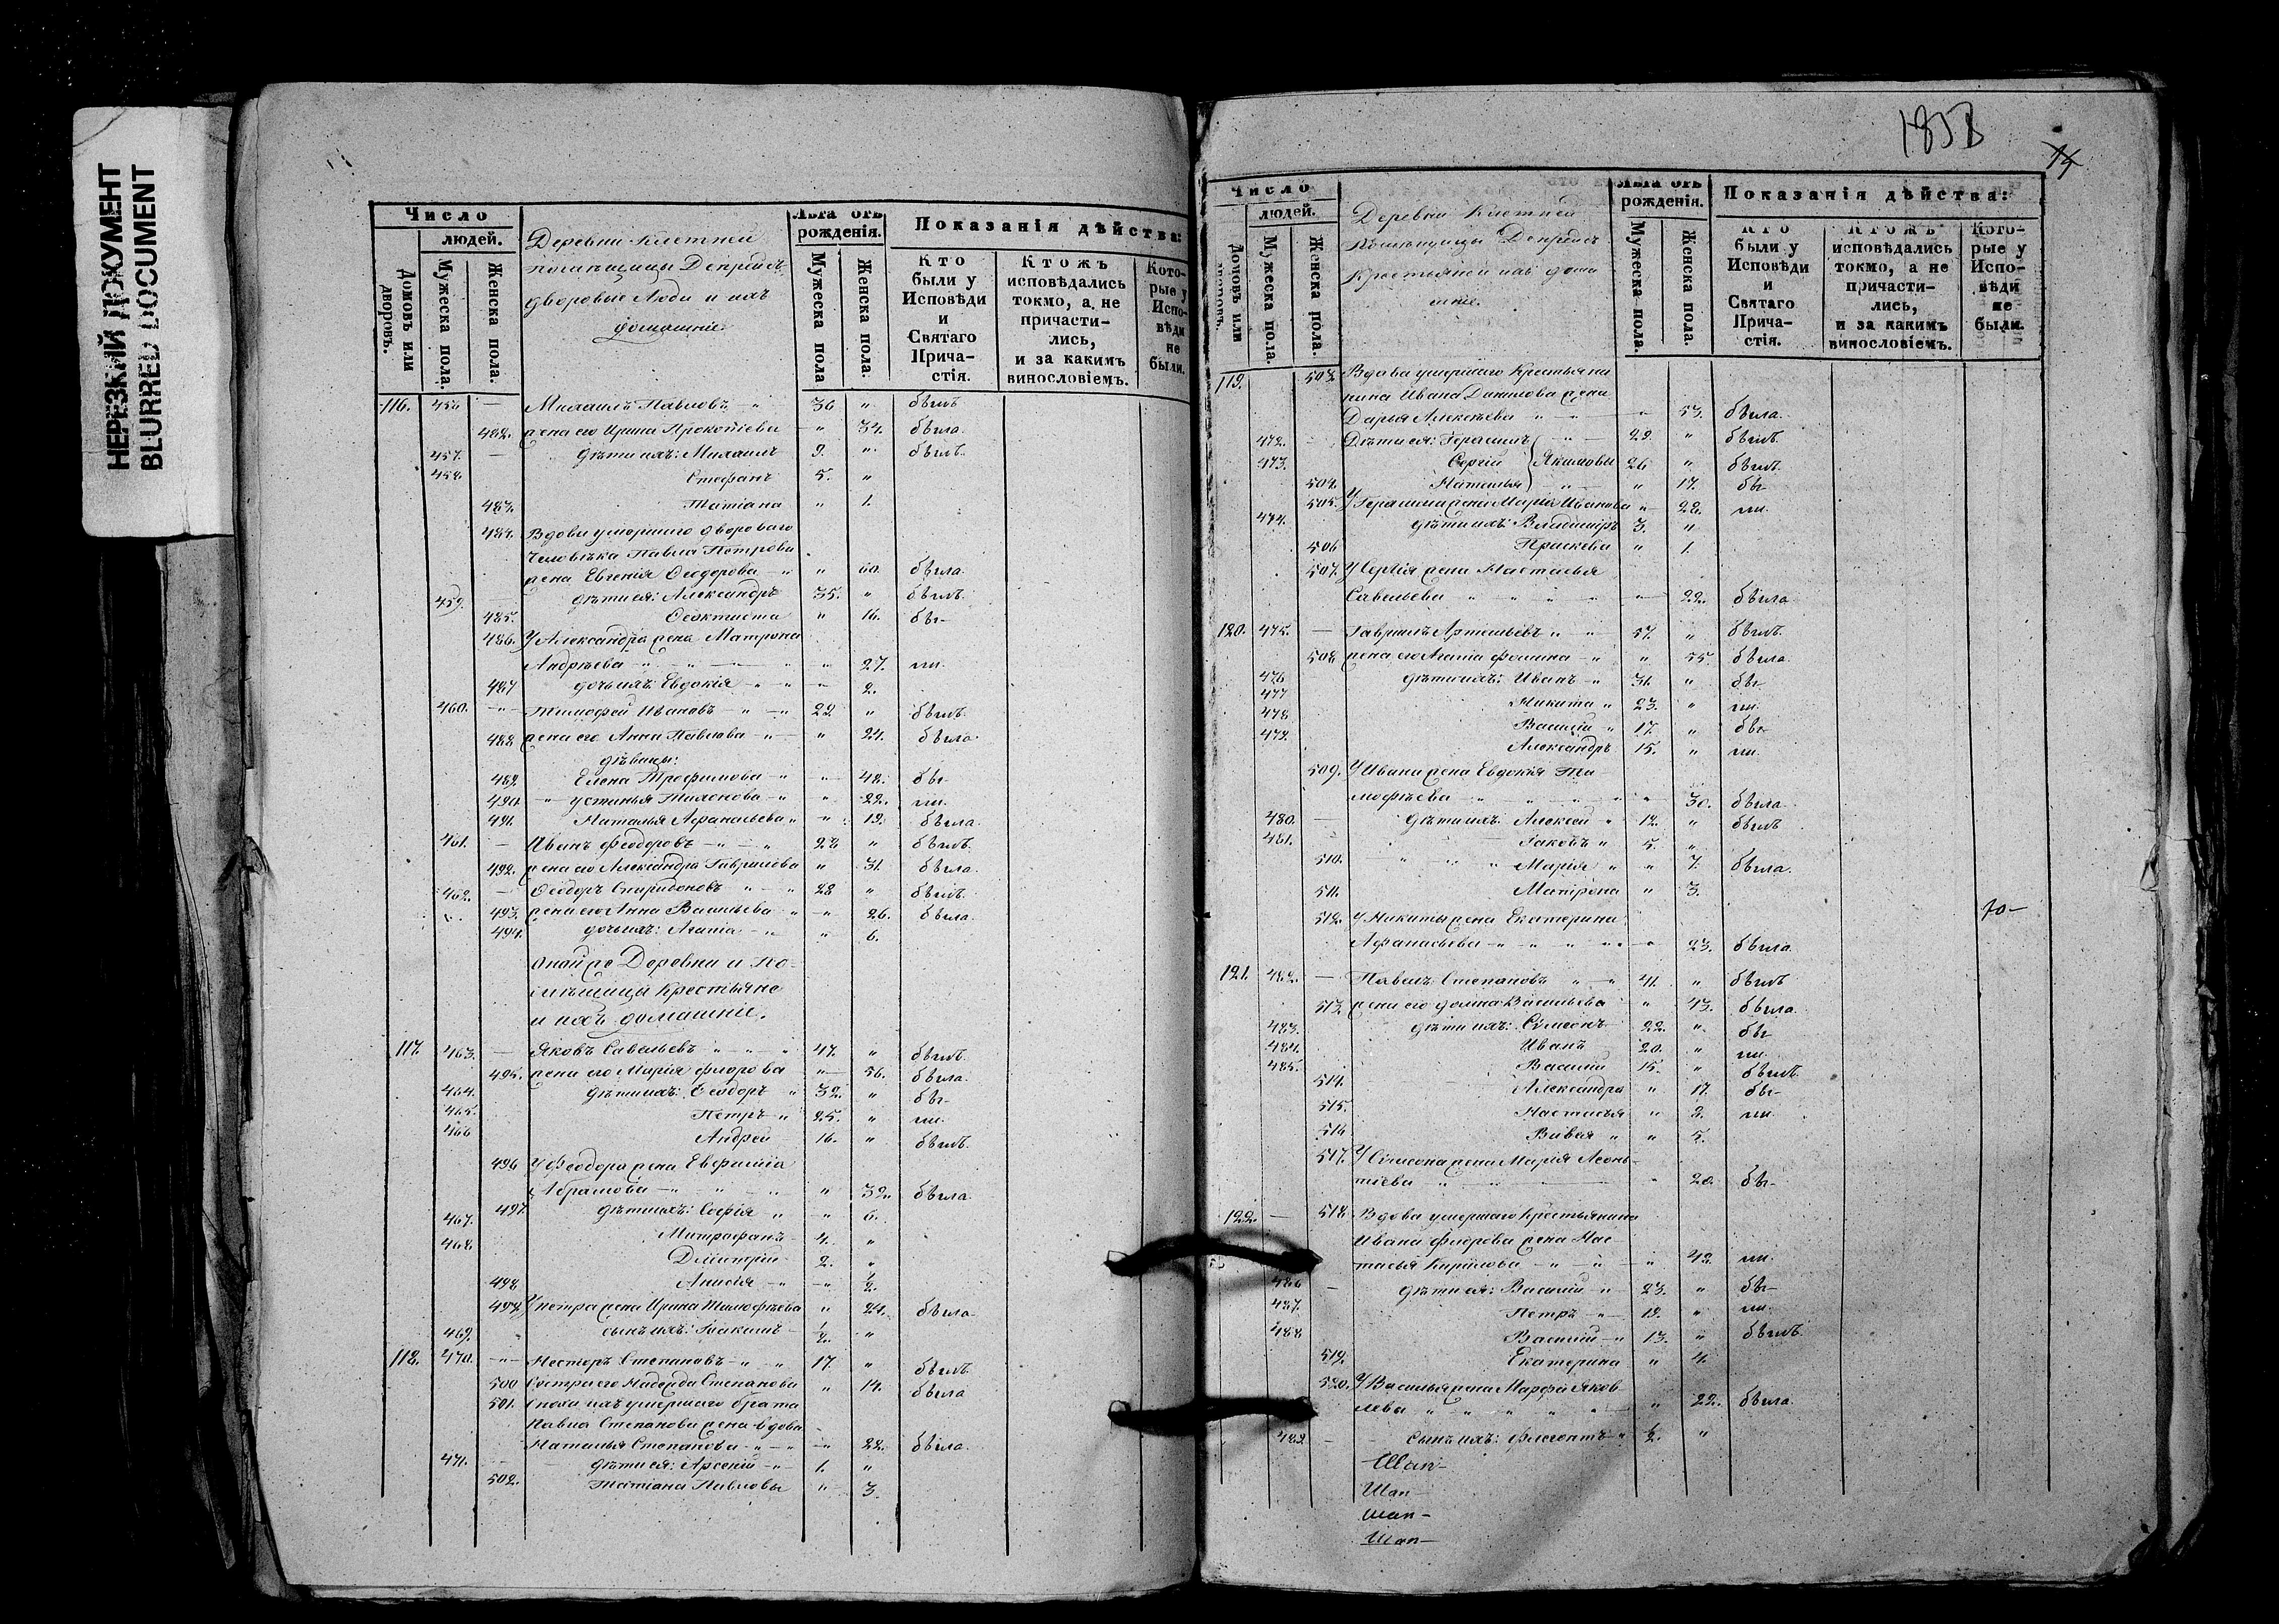 НЕРЕЗКИЙ ДОКУМЕНТ
BLURRED DOCUMENT
Число
людей.
Домовъ или дворовъ.
Мужеска пола.
Женска пола.
Деревни Клетней
помѣщицы
дворовые Люди и ихъ
домашніе
Лѣта отъ рожденія.
Мужеска пола
Женска пола.
Показанія дѣйства:
Кто были у Исповѣди и Святаго Прича-стія.
Ктожъ исповѣдались токмо, а не причасти-лись, и за какимъ винословіемъ.
Кото-рые у Испо-вѣди не были.
116. 456 — Михаилъ Павловъ 36 " былъ
482. жена его Ирина Прокопіева " 34. была.
457. — дѣти ихъ: Михаилъ 9. " былъ.
458 Стефанъ 5. "
483. Татіана " 1.
484. Вдова умершаго двороваго
человѣка Павла Петрова
жена Евгенія Ѳеодорова " 60. была.
459. дѣти ея: Александръ 35. " былъ.
485. Ѳеоктиста " 16. бы-
486. У Александра жена Матрона
Андрѣева " 27. ли.
487 дочь ихъ: Евдокія " 2.
460. Тимофей Ивановъ 22. " былъ.
488 жена его Анна Павлова " 24. была.
дѣвицы:
489. Елена Трофимова " 42. бы-
490. Устинья " 22. ли.
491. Наталья Афанасьева " 19. была.
461. — Иванъ Феодоровъ 28 " былъ.
492. жена его Александра Гаврилова " 31. была.
462. — Ѳеодоръ Спиридоновъ 28 " былъ.
493. жена его Анна Васильева " 26. была.
494. дочь ихъ: Агапіа " 6.
Оной же Деревни и по-
мѣщицы Крестьяне
и ихъ домашніе.
117. 463. — Яковъ Савельевъ 47. " былъ.
495. жена его Марія Флорова " 56. была.
464. дѣти ихъ: Ѳеодоръ 32. " бы-
465. Петръ 25. " ли.
466 Андрей 16. " былъ.
496 У Феодора жена Евфимія
Абрамова " 32. была.
497. дѣти ихъ: Софія " 6.
467. Митрофанъ 4. "
468 Димитрій 2. "
498 Анисія " ½.
499. У Петра жена Ирина Тимофѣева " 24. была.
469. сынъ ихъ: Іоакимъ ½. "
118. 470. Несторъ Степановъ 17. " былъ.
500 Сестра его Надежда Степанова " 14. была
501. Сноха ихъ умершаго брата
Павла Степанова жена вдова
Наталья Степанова " 22. была.
471. дѣти ея: Арсеній 1. "
502. Татіана Павловы " 3.
1853
14
Число
людей.
Домовъ или дворовъ.
Мужеска пола.
Женска пола.
Деревни Клетней
Помѣщицы
Крестьяне и ихъ дома
шніе.
Лѣта отъ рожденія.
Мужеска пола.
Женска пола.
Показанія дѣйства:
Кто были у Исповѣди и Святаго Прича-стія.
Ктожъ исповѣдались токмо, а не причасти-лись, и за какимъ винословіемъ.
Кото-рые у Испо-вѣди не были.
119. 503. Вдова умершаго Крестья
нина Ивана Данилова жена
Дарья Алексѣева " 53. была.
472. Дѣти ея: Герасимъ 29. " былъ.
473. Сергій Якимовы 26 " былъ.
504. Наталья " 17. бы-
505. У Герасима жена Марія Иванова " 22. ли.
474. дѣти ихъ: Владиміръ 3. "
506 Праскева " 1.
507. У Сергія жена Настасья
Савельева " 22. была
120. 475. — Гавріилъ Артемьевъ 57. " былъ.
508 жена его Агапіа Фомина " 55. была.
476 дѣти ихъ: Иванъ 31. " бы-
477 Никита 23. " ли.
478 Василій 17. " бы-
479. Александръ 15. " ли.
509. У Ивана жена Евдокія Ти-
мофѣева " 30. была.
480. — дѣти ихъ: Алексей 12. " былъ
481. Іаковъ 5. "
510. Марія " 7. была.
511. Матрона " 3.
512. У Никиты жена Екатерина
Афанасьева " 23. была.
70-
121. 482. — Павелъ Степановъ 41. " былъ
513. жена его Домна Васильева " 43. была.
483. дѣти ихъ: Симеонъ 22. " бы-
484. Иванъ 20. " ли.
485. Василій 15. " былъ.
514. Александра " 17. бы-
515. Настасья " 9. ли.
516 " 5.
517. У Симеона жена Марія Леонь-
тіева " 20. бы-
122. — 518. Вдова умершаго Крестьянина
Ивана Флорова жена Нас
тасья Кирилова " 43. ли.
486 — дѣти ея: Василій 23. " бы-
487. Петръ 19. " ли.
488 Василій 13. " былъ.
519. Екатерина " 4.
520. У Василья жена Марфа Яков
лева " 22. была.
489. — сынъ ихъ: Флегонтъ ½. "
Шап-
Шап-
Шап-
Шап-